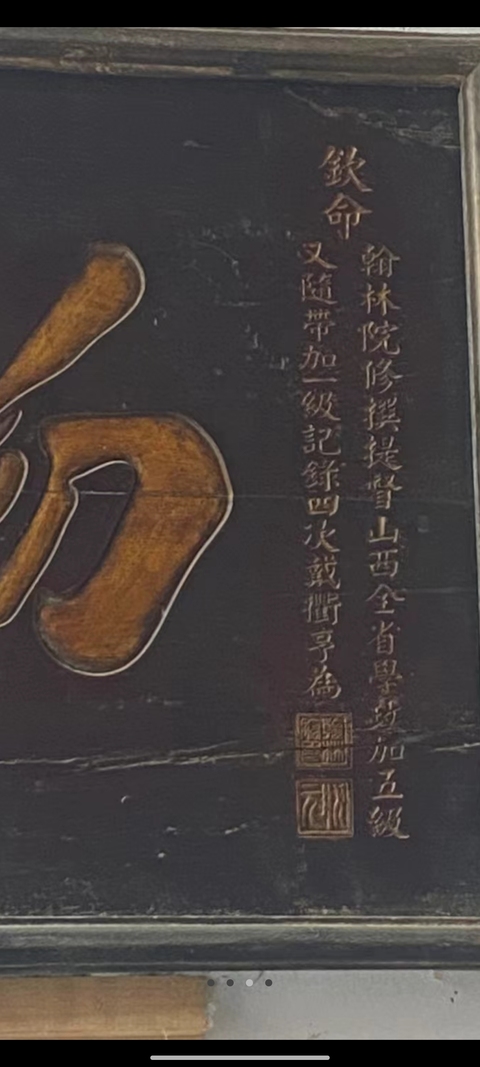 欽命
翰林院修撰提督山西全省學政加五級
又隨帶加一級記錄四次戴衢亨為